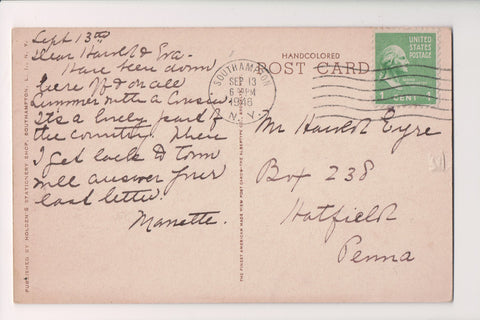 Sept 13th
Dear Harold & Eva.
Have been down
here off & on all
summer with a cousin
It's a lovely part of
the country. When
I get back to town
will answer your
last letter.
Manette.
PUBLISHED BY HOLDEN'S STATIONERY SHOP, SOUTHAMPTON, L. I., N. Y.
THE FINEST AMERICAN MADE VIEW POST CARDS—THE ALBERTYPE CO.
HANDCOLORED
POST CARD
SOUTHAMPTON
SEP 13
6 PM
1948
N.Y.
UNITED
STATES
POSTAGE
1 CENT 1
Mr Harold Eyre
Box 238
Hatfield
Penna